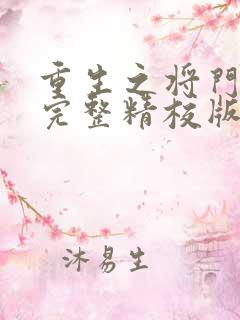 重生之将門
完整精校版
沐易生